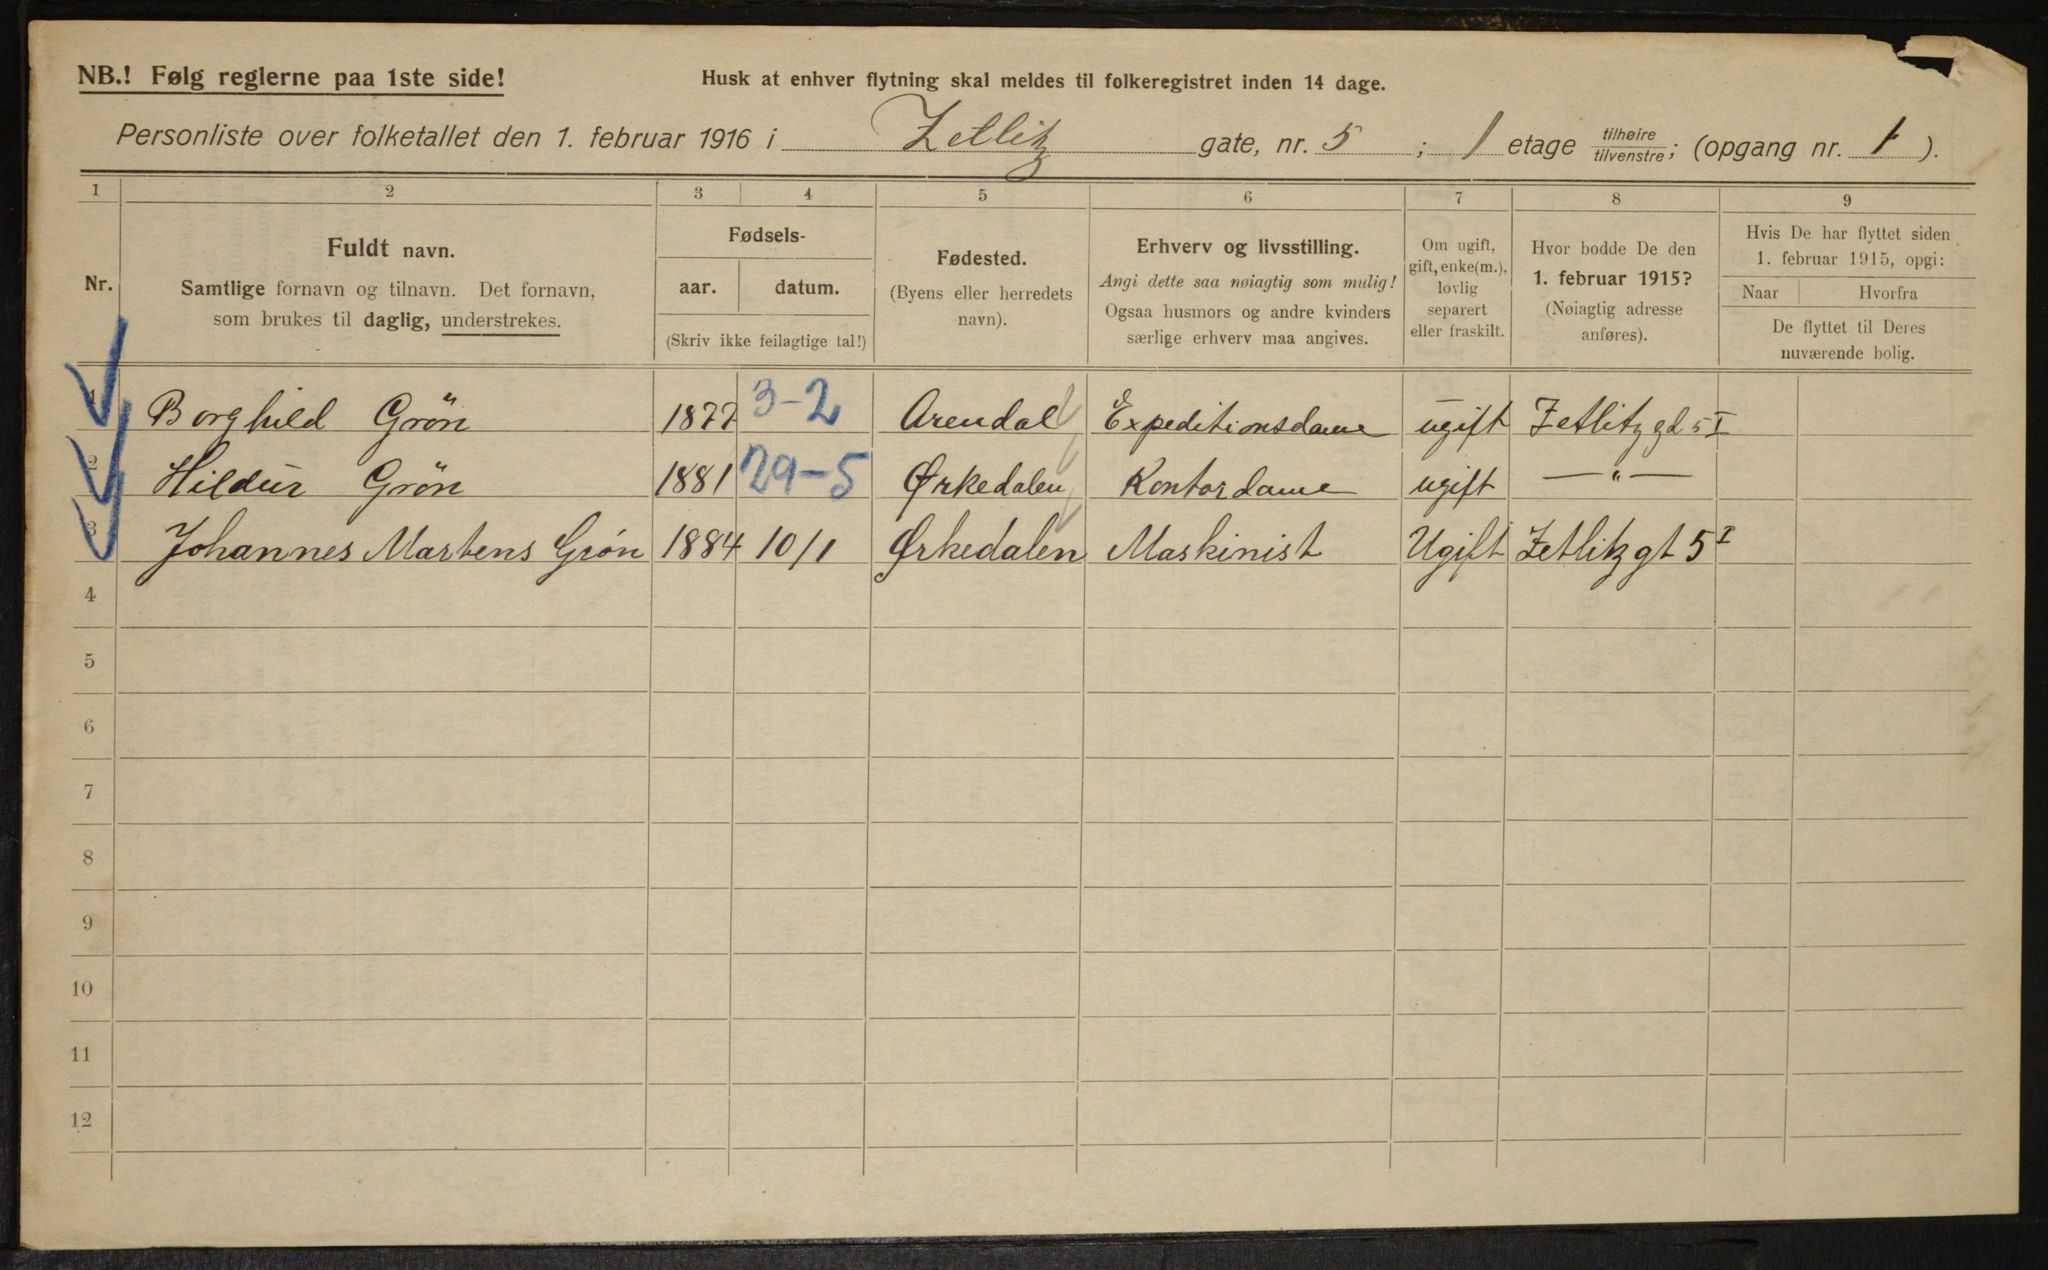 NB.! Følg reglerne paa 1ste side!
Husk at enhver flytning skal meldes til folkeregistret inden 14 dage.
Personliste over folketallet den 1. februar 1916 i Zetlitz gate, nr. 5 ; 1 etage tilhøire/tilvenstre; (opgang nr. 1 ).
1 2 3 4 5 6 7 8 9
Nr.
Fuldt navn.
Samtlige fornavn og tilnavn. Det fornavn,
som brukes til daglig, understrekes.
Fødsels-
aar. datum.
(Skriv ikke feilagtige tal!)
Fødested.
(Byens eller herredets
navn).
Erhverv og livsstilling.
Angi dette saa nøiagtig som mulig!
Ogsaa husmors og andre kvinders
særlige erhverv maa angives.
Om ugift,
gift, enke(m.),
lovlig
separert
eller fraskilt.
Hvor bodde De den
1. februar 1915?
(Nøiagtig adresse
anføres).
Hvis De har flyttet siden
1. februar 1915, opgi:
Naar Hvorfra
De flyttet til Deres
nuværende bolig.
1 Borghild Grön 1877 3-2 Arendal Expeditionsdame ugift Zetlitzgd 5 I
2 Hildur Grön 1881 29-5 Ørkedalen Kontordame ugift — " —
3 Johannes Martens Grön 1884 10/1 Ørkedalen Maskinist Ugift Zetlitzgt 5 I
4
5
6
7
8
9
10
11
12